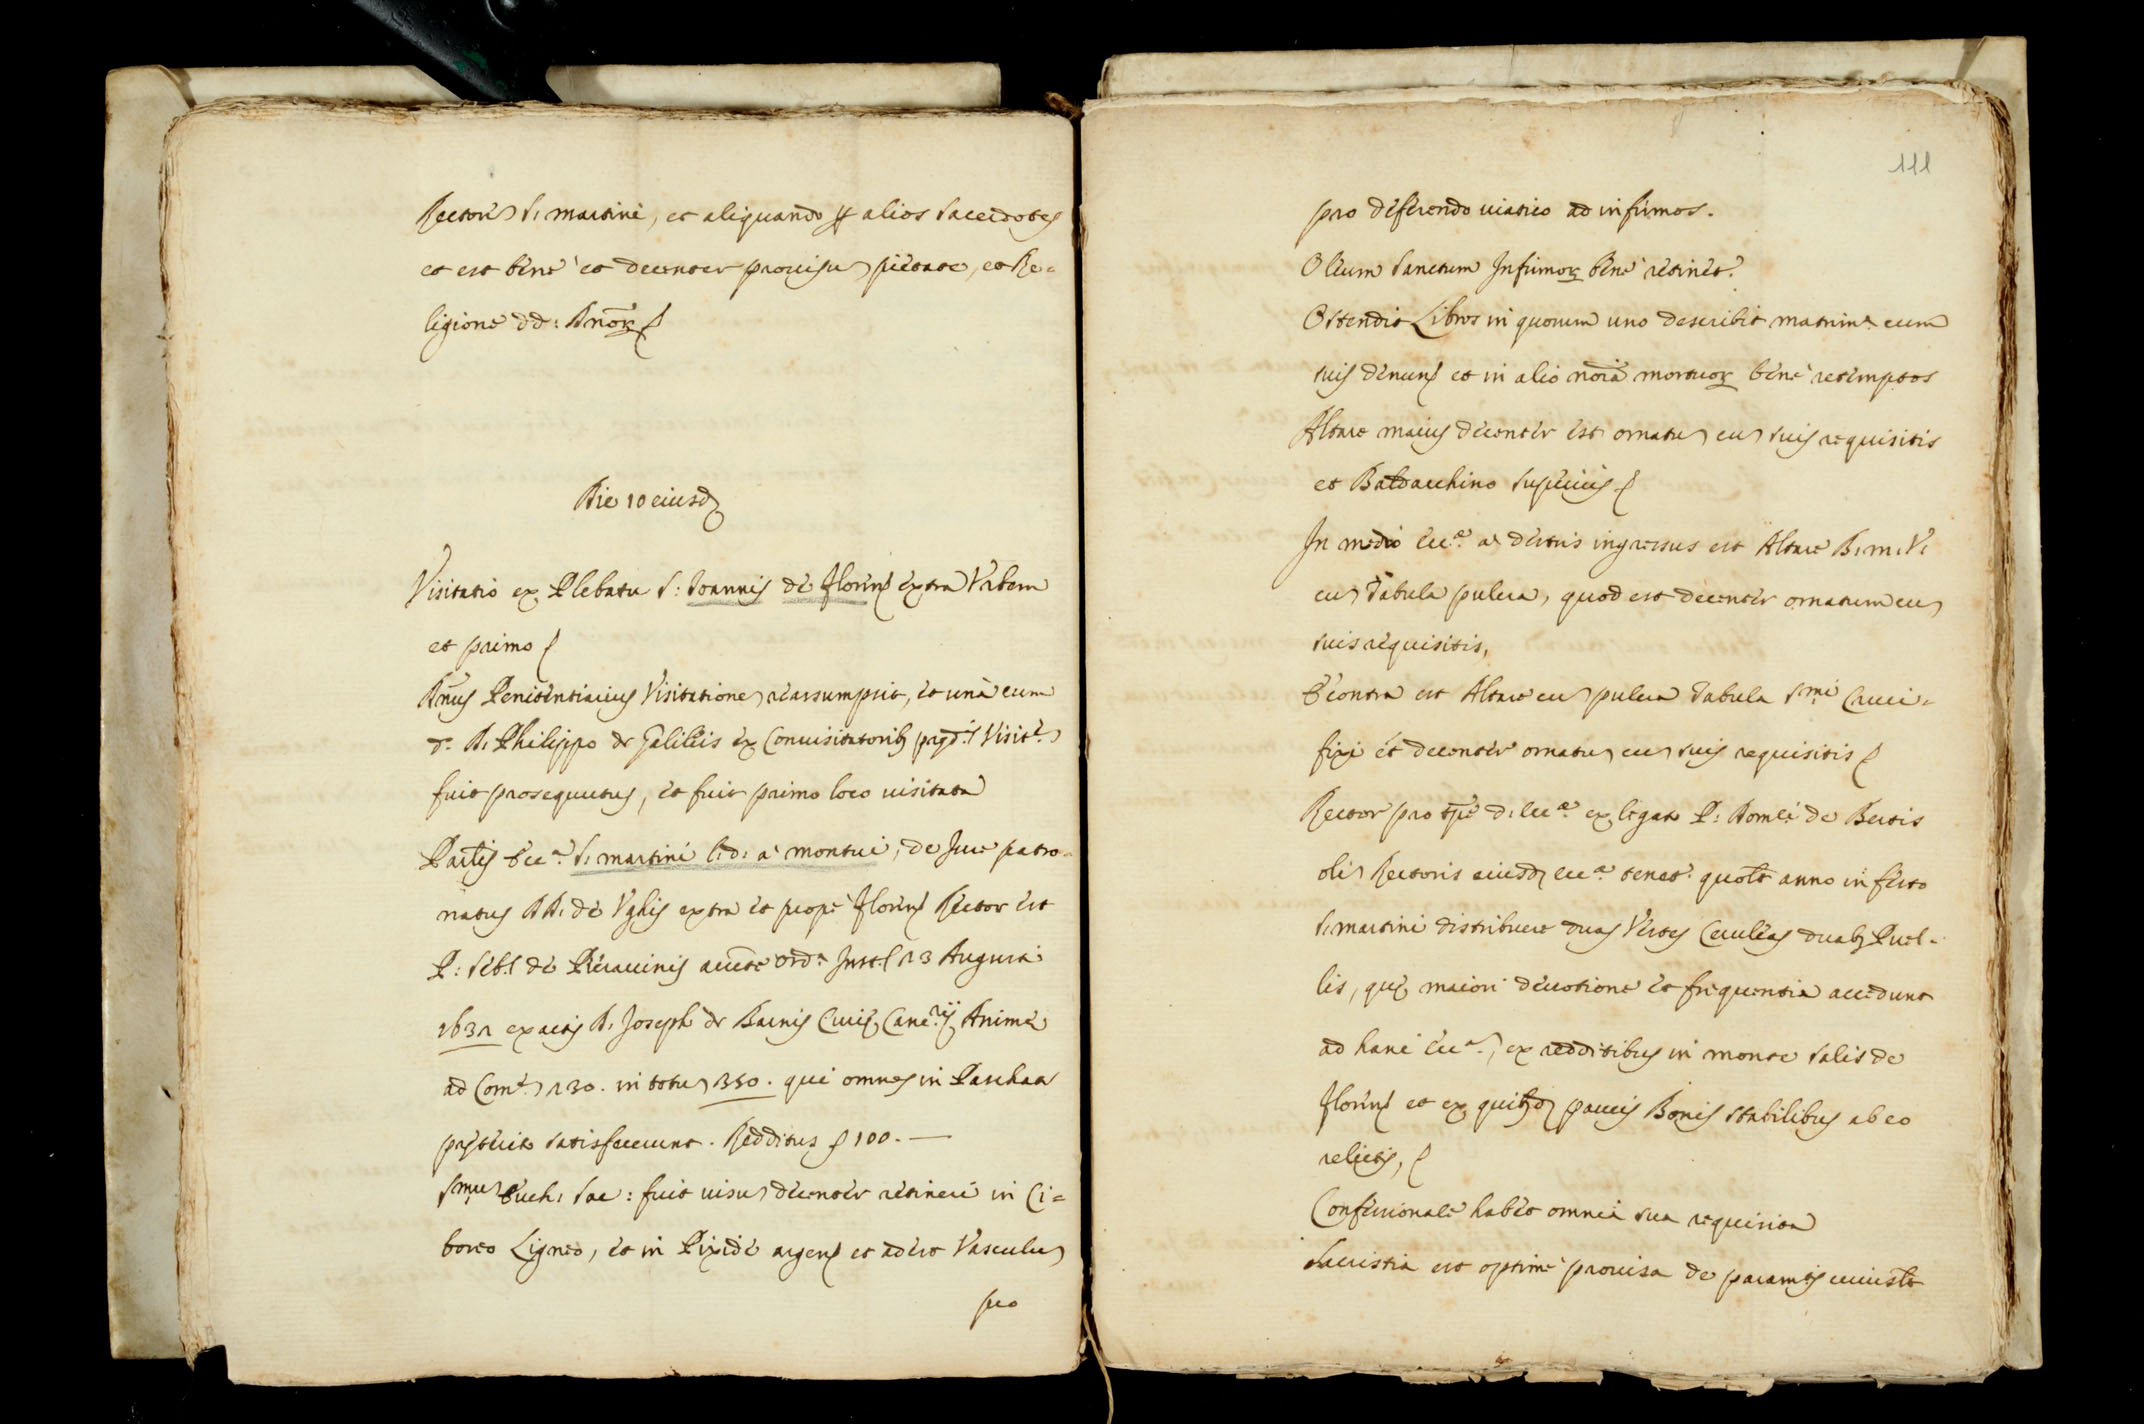 Rectorē S. Martini, et aliquando ꝑ alios Sacerdotes
et est benè et decenter prouisū pietate, et Re=
ligione dd: Dnoꝝ
Die 10 eiusdꝫ
Visitatio ex Plebatu S: Joannis de Floren extra Vrbem
et primo
Dnus Penitentiarius Visitationē reassumpsit, et unà cum
D. Philippo de Galileis ex Conuisitatoribꝫ Visit.
fuit prosequutus, et fuit primo loco uisitata
S. Martini l.d. à Montui, de Jure patro=
natus DD. de Vghis extra et propè Floren Rector est
P: de ord. 23 Augusti
1631 ex actis D. Joseph de Barnis Animē
ad Com. 230. in totū 350. qui omnes in Paschate
satisfecerunt. Redditus 100.
Smū Euch. Sac: fuit uisū decenter retineri in Ci=
borio Ligneo, et in Pixide argen et adest Vasculū
pro
111
pro deferendo uiatico ad infirmos.
Oleum Sanctum Infirmoꝝ benè retinet.
Ostendit Libros in quorum uno describit matrim. cum
suis denun et in alio noīa mortuoꝝ benè retemptos
Altare maius decenter est ornatū cū suis requisitis
et Baldacchino superius
In medio ecc.ᵉ à dextris ingressus est Altare B.M.V.
cū Tabula pulcra, quod est decenter ornatum cū
suis requisitis,
Econtra est Altare cū pulcra Tabula Smi Cruci=
fixi et decenter ornatū cū suis requisitis
Rector pro tpē d. ecc.ᵉ ex legato P: Domci de Bertis
oli Rectoris eiusdꝫ ecc.ᵉ tenet. quolt anno in festo
S. Martini distribuere duas Vestes Ceruleas duabꝫ Puel=
lis, quę maiori deuotione et frequentia accedunt
ad hanc ecc., ex redditibus in monte Salis de
Floren et ex quibꝫdꝫ paucis Bonis stabilibus ab eo
relictis,
Confessionale habet omnia sua requisita
Sacristia est optimè prouisa de paramtis cuiuslt